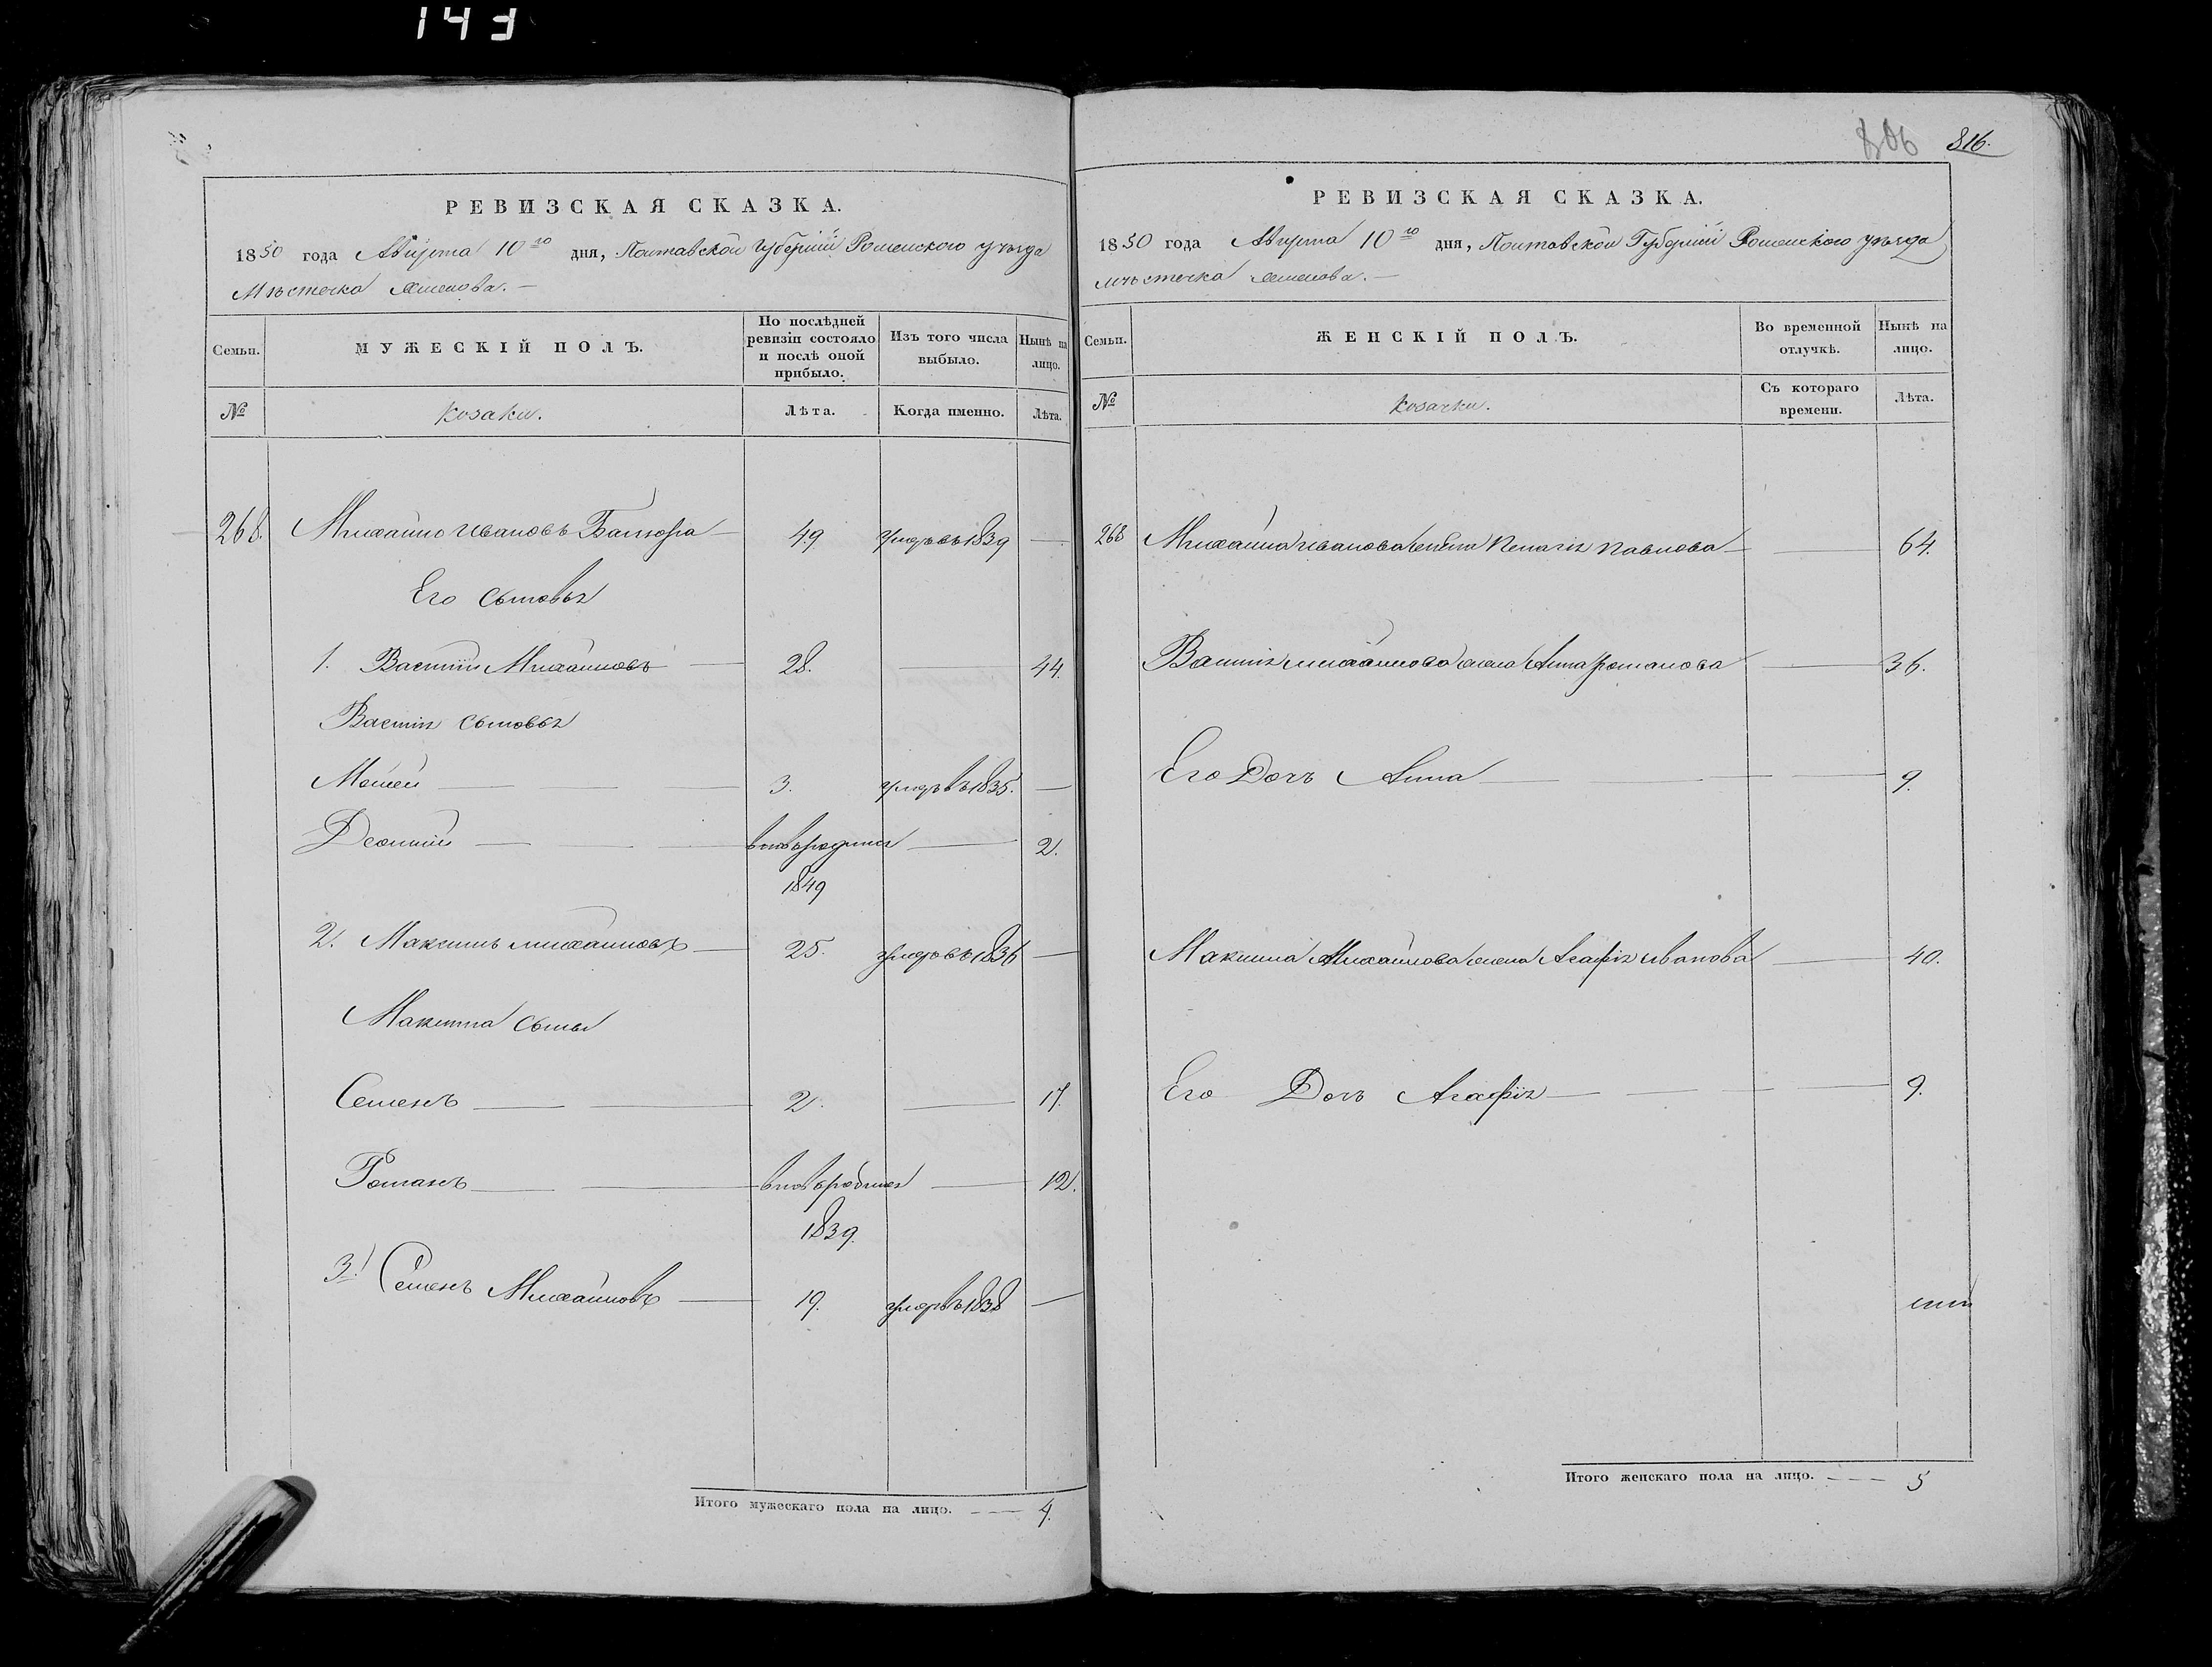 143
806 816.
РЕВИЗСКАЯ СКАЗКА.
1850 года Августа 10го дня, Полтавской Губерніи Роменского уѣзда
Мѣстечка
Семьи.
МУЖЕСКІЙ ПОЛЪ.
По послѣдней ревизіи состояло и послѣ оной прибыло.
Изъ того числа выбыло.
Нынѣ на лицо.
№
Козаки.
Лѣта.
Когда именно.
Лѣта.
268. Михайло Ивановъ 49. умеръ въ 1839 —
Его сыновья
1. Василій Михайловъ — 28. — 44.
Василія сыновья
Мосей — 3. умеръ въ 1835. —
Леонтій — вновьрожденъ — 2.
1849
2. Максимъ Михайловъ — 25. умеръ въ 1836 —
Максима сыны
Семенъ — 2. — 17.
Романъ — — 12.
1839.
3. Семенъ Михайловъ — 19. умеръ въ 1838 —
Итого мужескаго пола на лицо. — 4.
РЕВИЗСКАЯ СКАЗКА.
1850 года Августа 10го дня, Полтавской Губерніи Роменского уѣзда
мѣстечка
Семьи.
ЖЕНСКІЙ ПОЛЪ.
Во временной отлучкѣ.
Нынѣ на лицо.
№
Козачки.
Съ котораго времени.
Лѣта.
268 Михайла Иванова жена Пелагія Павлова — 64.
Василія Михайлова жена Анна Романова — 36.
Его Дочь Анна — 9.
Максима Михайлова жена Агафія Иванова — 40.
Его Дочь Агафія — 9.
Итого женскаго пола на лицо. — 5